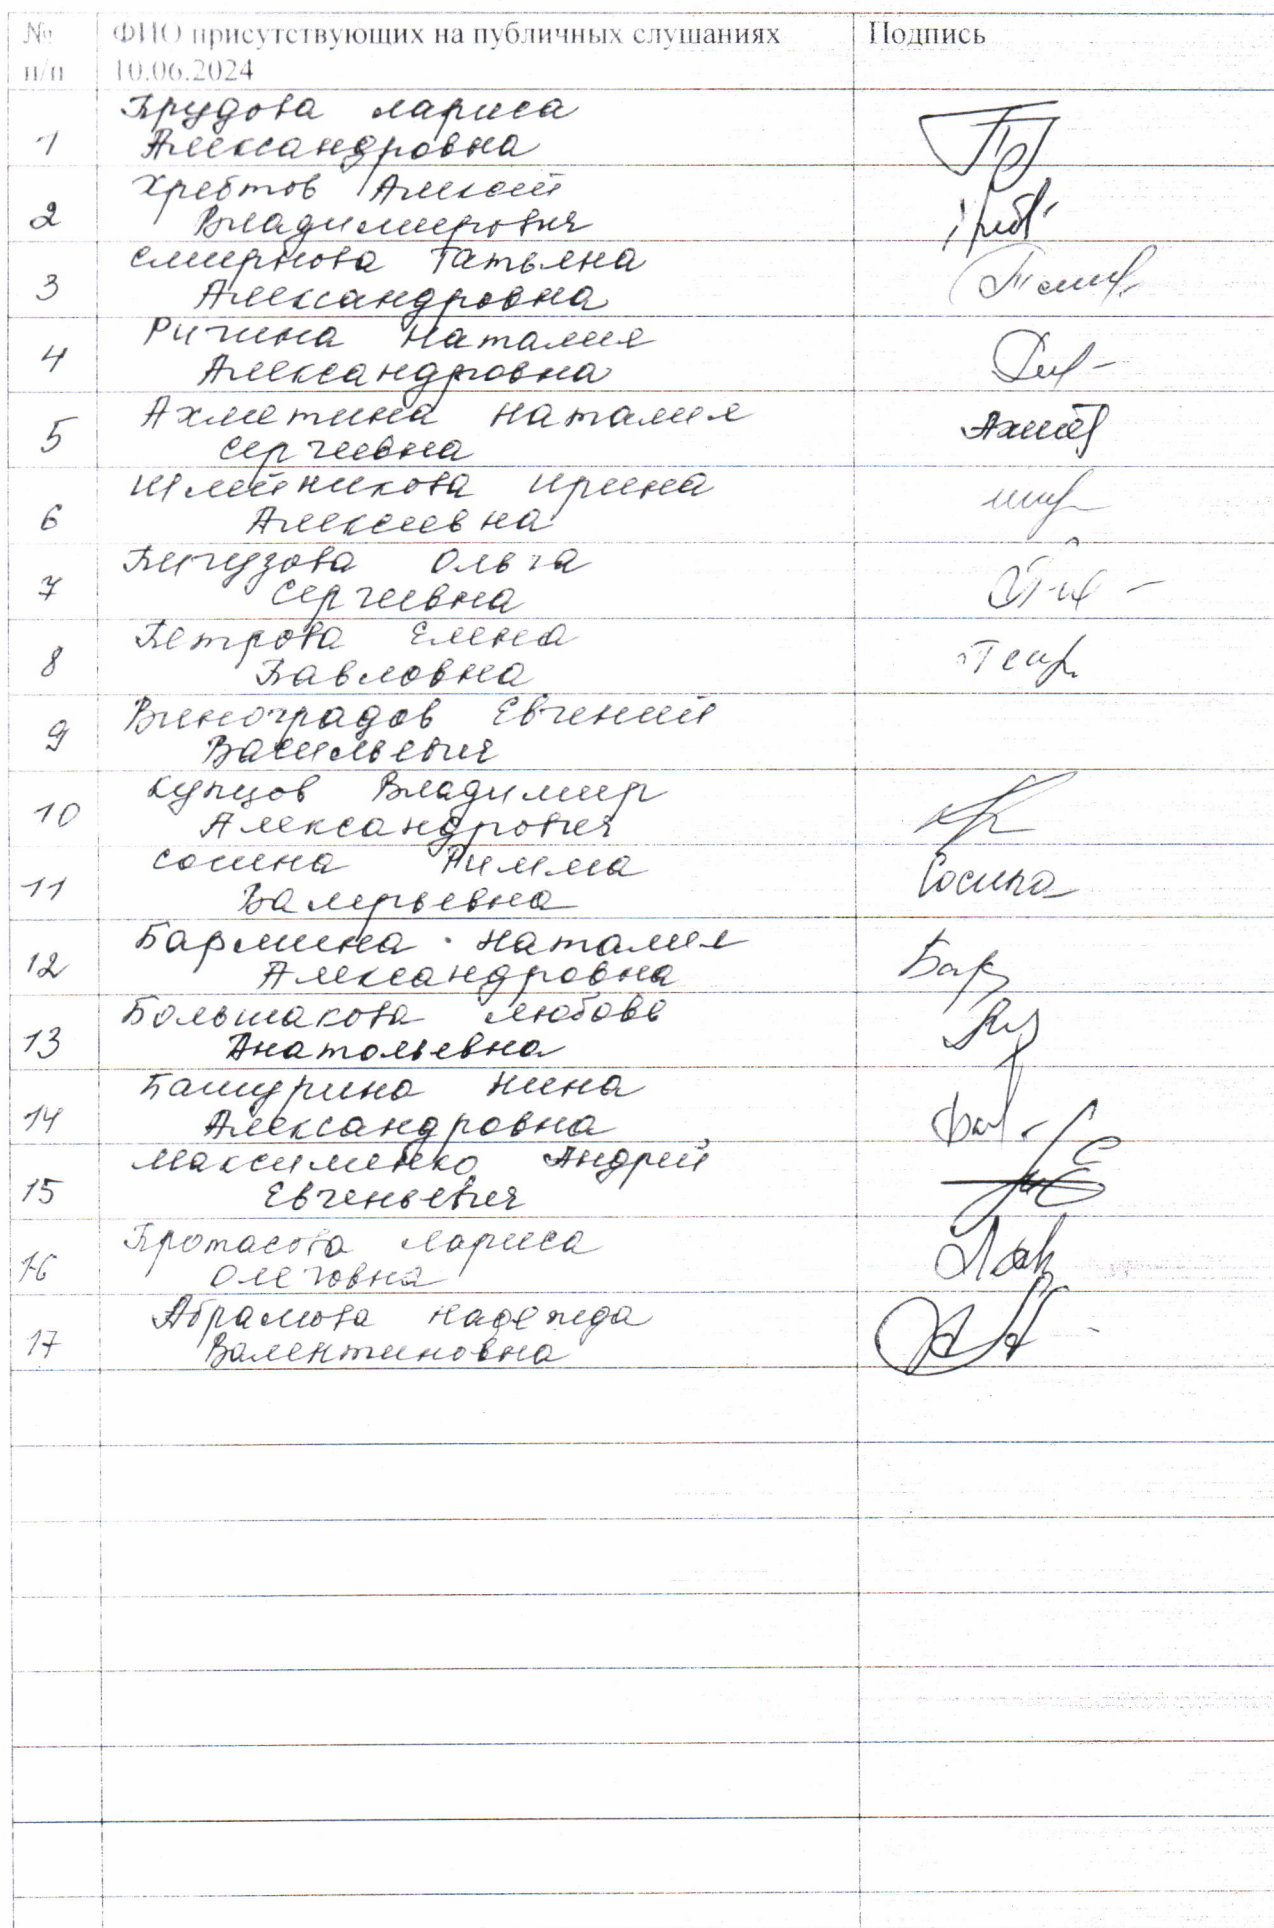 № ФИО присутствующих на публичных слушаниях Подпись
п/п 10.06.2024
Прудова Лариса
1 Александровна
Хребтов Алексей
2 Владимирович
Смирнова Татьяна
3 Александровна
Ричина Наталия
4 Александровна
Ахметина Наталия
5 Сергеевна Ахмет
Шлейникова Ирина
6 Алексеевна
Пигузова Ольга
7 Сергеевна
Петрова Елена
8 Павловна
Виноградов Евгений
9 Васильевич
Купцов Владимир
10 Александрович
Сосина Римма
11 Валерьевна Сосина
Бармина Наталия
12 Александровна Бар
Большакова Любовь
13 Анатольевна
Башурина Нина
14 Александровна
Максименко Андрей
15 Евгеньевич
Протасова Лариса
16 Олеговна
Абрамова Надежда
17 Валентиновна